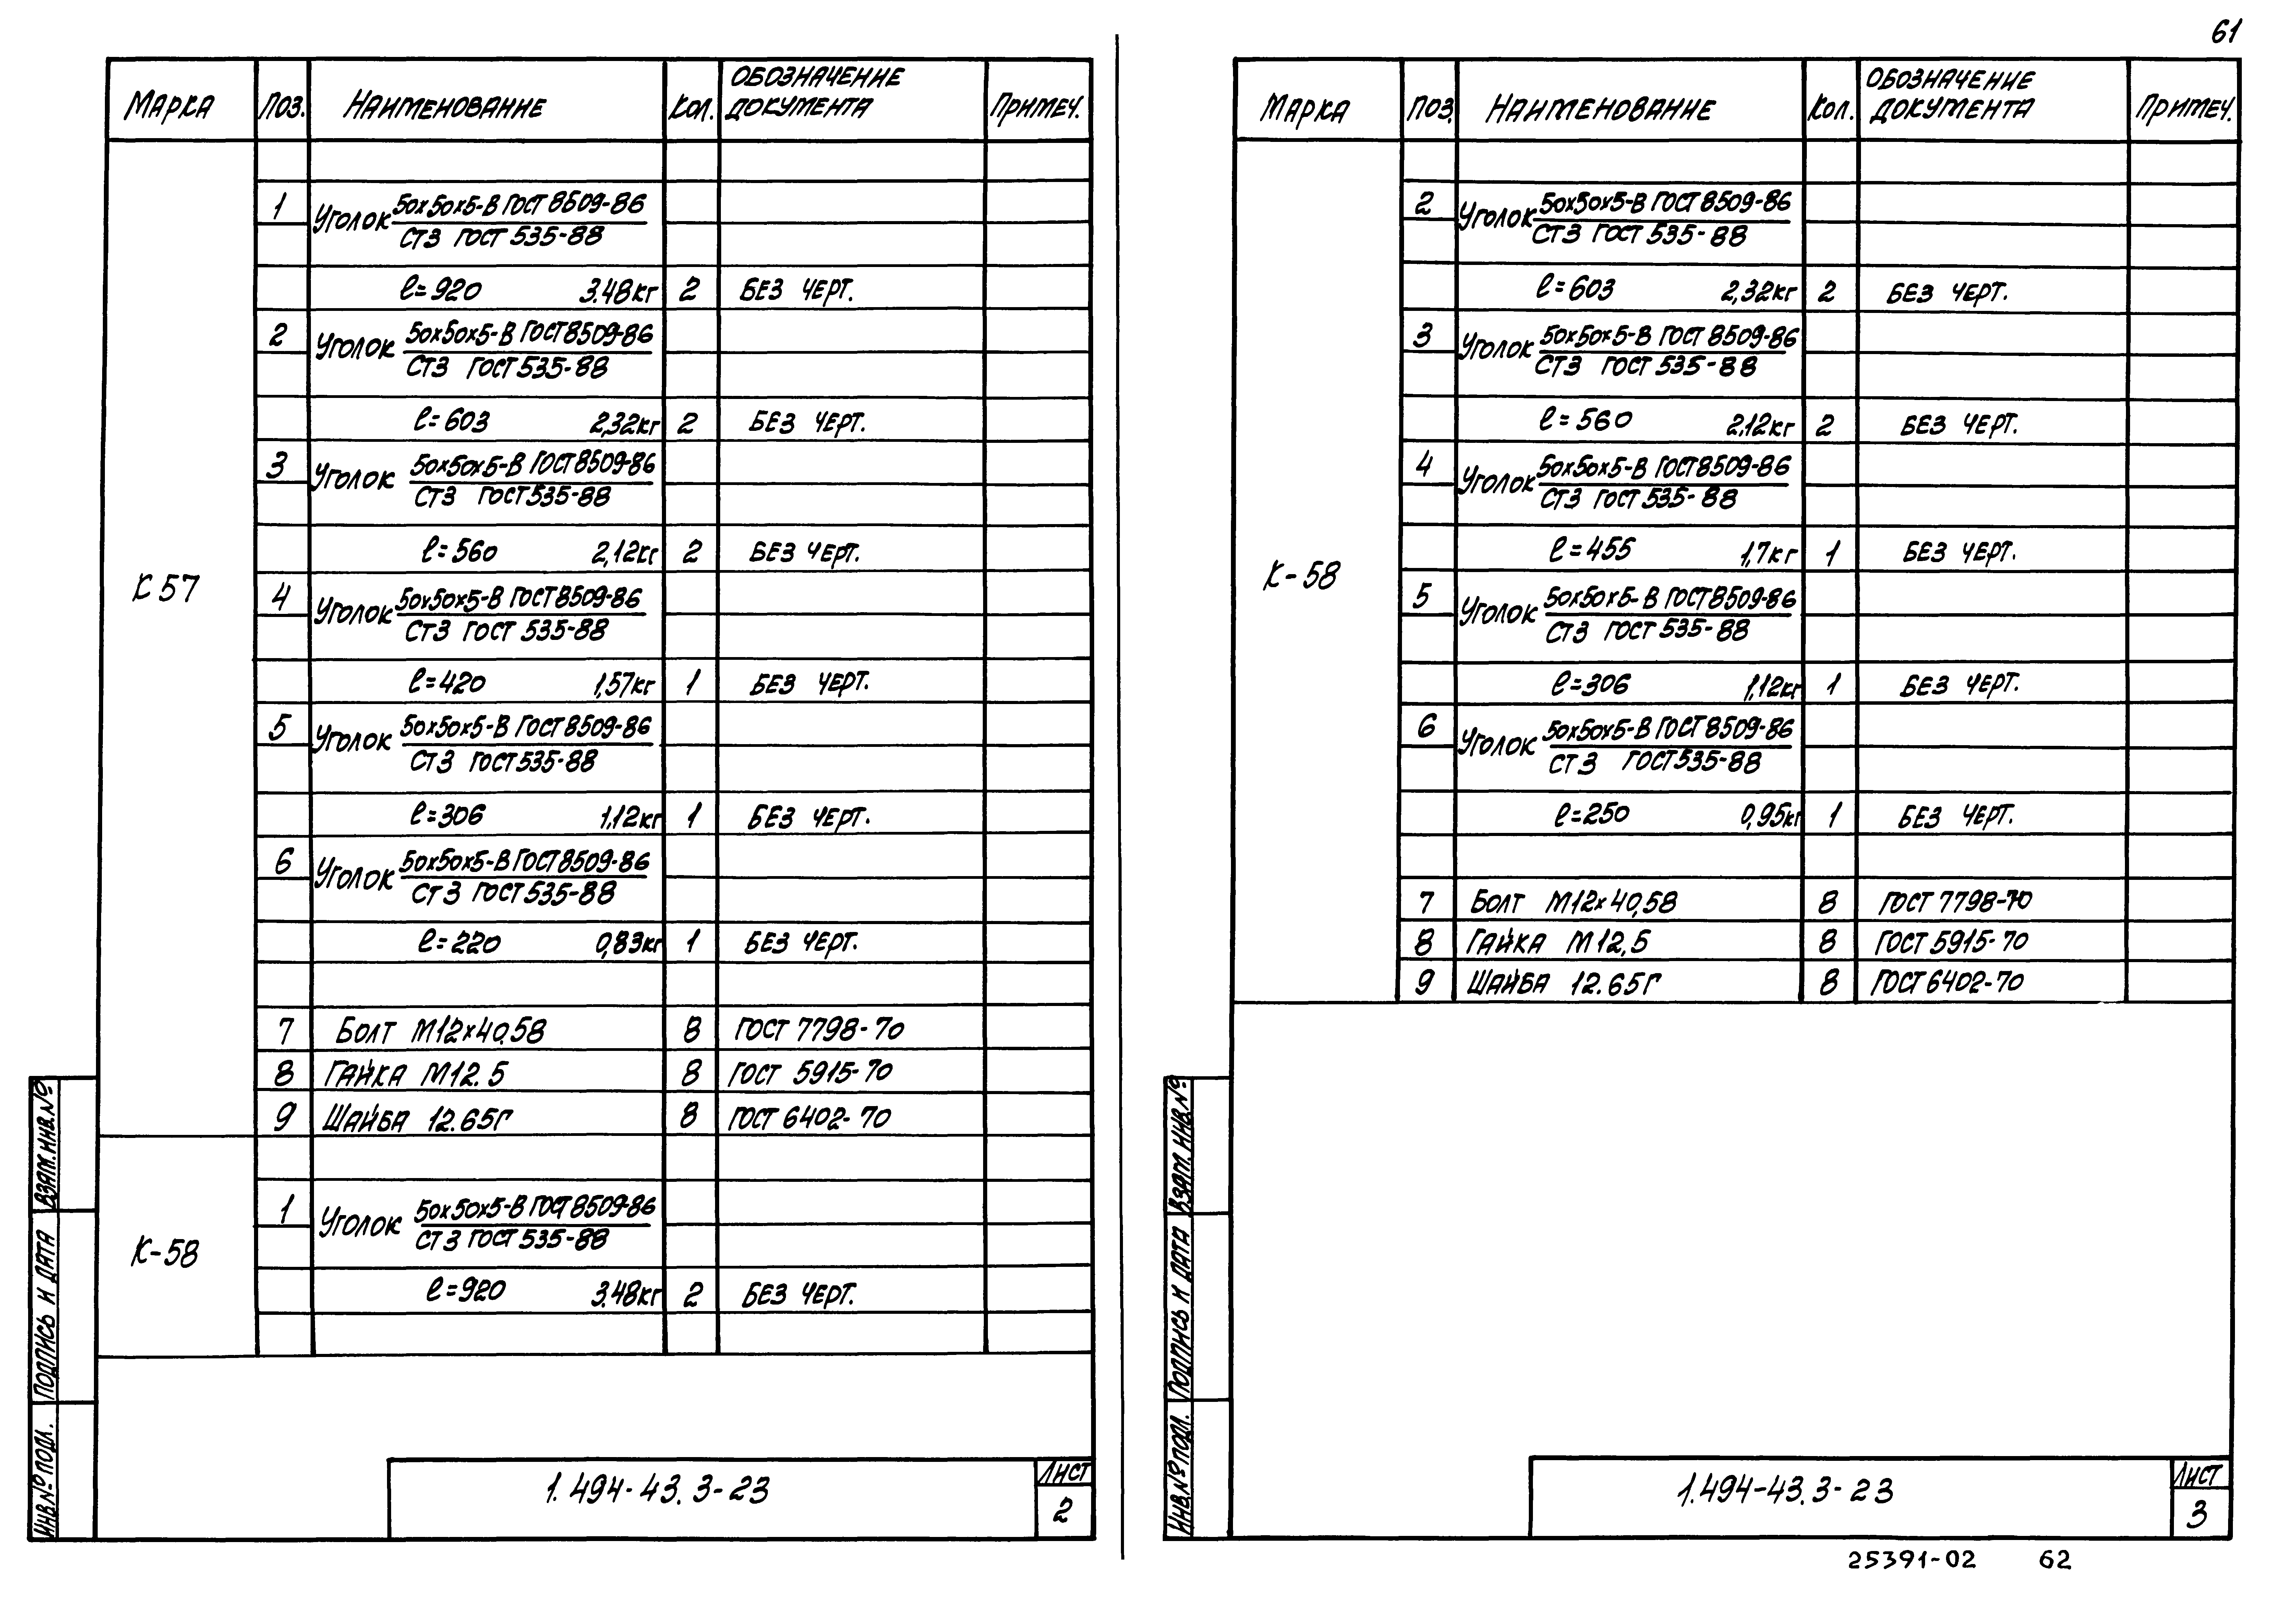 61
Марка Поз. Наименование Кол. Обозначение документа Примеч.
К 57
1 Уголок 50х50х5-В ГОСТ 8509-86
Ст3 ГОСТ 535-88
ℓ=920 3.48кг 2 Без черт.
2 Уголок 50х50х5-В ГОСТ 8509-86
Ст3 ГОСТ 535-88
ℓ=603 2,32кг 2 Без черт.
3 Уголок 50х50х5-В ГОСТ 8509-86
Ст3 ГОСТ 535-88
ℓ=560 2,12кг 2 Без черт.
4 Уголок 50х50х5-В ГОСТ 8509-86
Ст3 ГОСТ 535-88
ℓ=420 1,57кг 1 Без черт.
5 Уголок 50х50х5-В ГОСТ 8509-86
Ст3 ГОСТ 535-88
ℓ=306 1,12кг 1 Без черт.
6 Уголок 50х50х5-В ГОСТ 8509-86
Ст3 ГОСТ 535-88
ℓ=220 0,83кг 1 Без черт.
7 Болт М12х40.58 8 ГОСТ 7798-70
8 Гайка М12.5 8 ГОСТ 5915-70
9 Шайба 12.65Г 8 ГОСТ 6402-70
К-58
1 Уголок 50х50х5-В ГОСТ 8509-86
Ст3 ГОСТ 535-88
ℓ=920 3.48кг 2 Без черт.
Инв.№ подл. Подпись и дата Взам.инв.№
1.494-43.3-23
Лист
2
Марка Поз. Наименование Кол. Обозначение документа Примеч.
К-58
2 Уголок 50х50х5-В ГОСТ 8509-86
Ст3 ГОСТ 535-88
ℓ=603 2,32кг 2 Без черт.
3 Уголок 50х50х5-В ГОСТ 8509-86
Ст3 ГОСТ 535-88
ℓ=560 2,12кг 2 Без черт.
4 Уголок 50х50х5-В ГОСТ 8509-86
Ст3 ГОСТ 535-88
ℓ=455 1,7кг 1 Без черт.
5 Уголок 50х50х5-В ГОСТ 8509-86
Ст3 ГОСТ 535-88
ℓ=306 1,12кг 1 Без черт.
6 Уголок 50х50х5-В ГОСТ 8509-86
Ст3 ГОСТ 535-88
ℓ=250 0,95кг 1 Без черт.
7 Болт М12х40,58 8 ГОСТ 7798-70
8 Гайка М12,5 8 ГОСТ 5915-70
9 Шайба 12.65Г 8 ГОСТ 6402-70
Инв.№ подл. Подпись и дата Взам. инв.№
1.494-43.3-23
Лист
3
25391-02 62